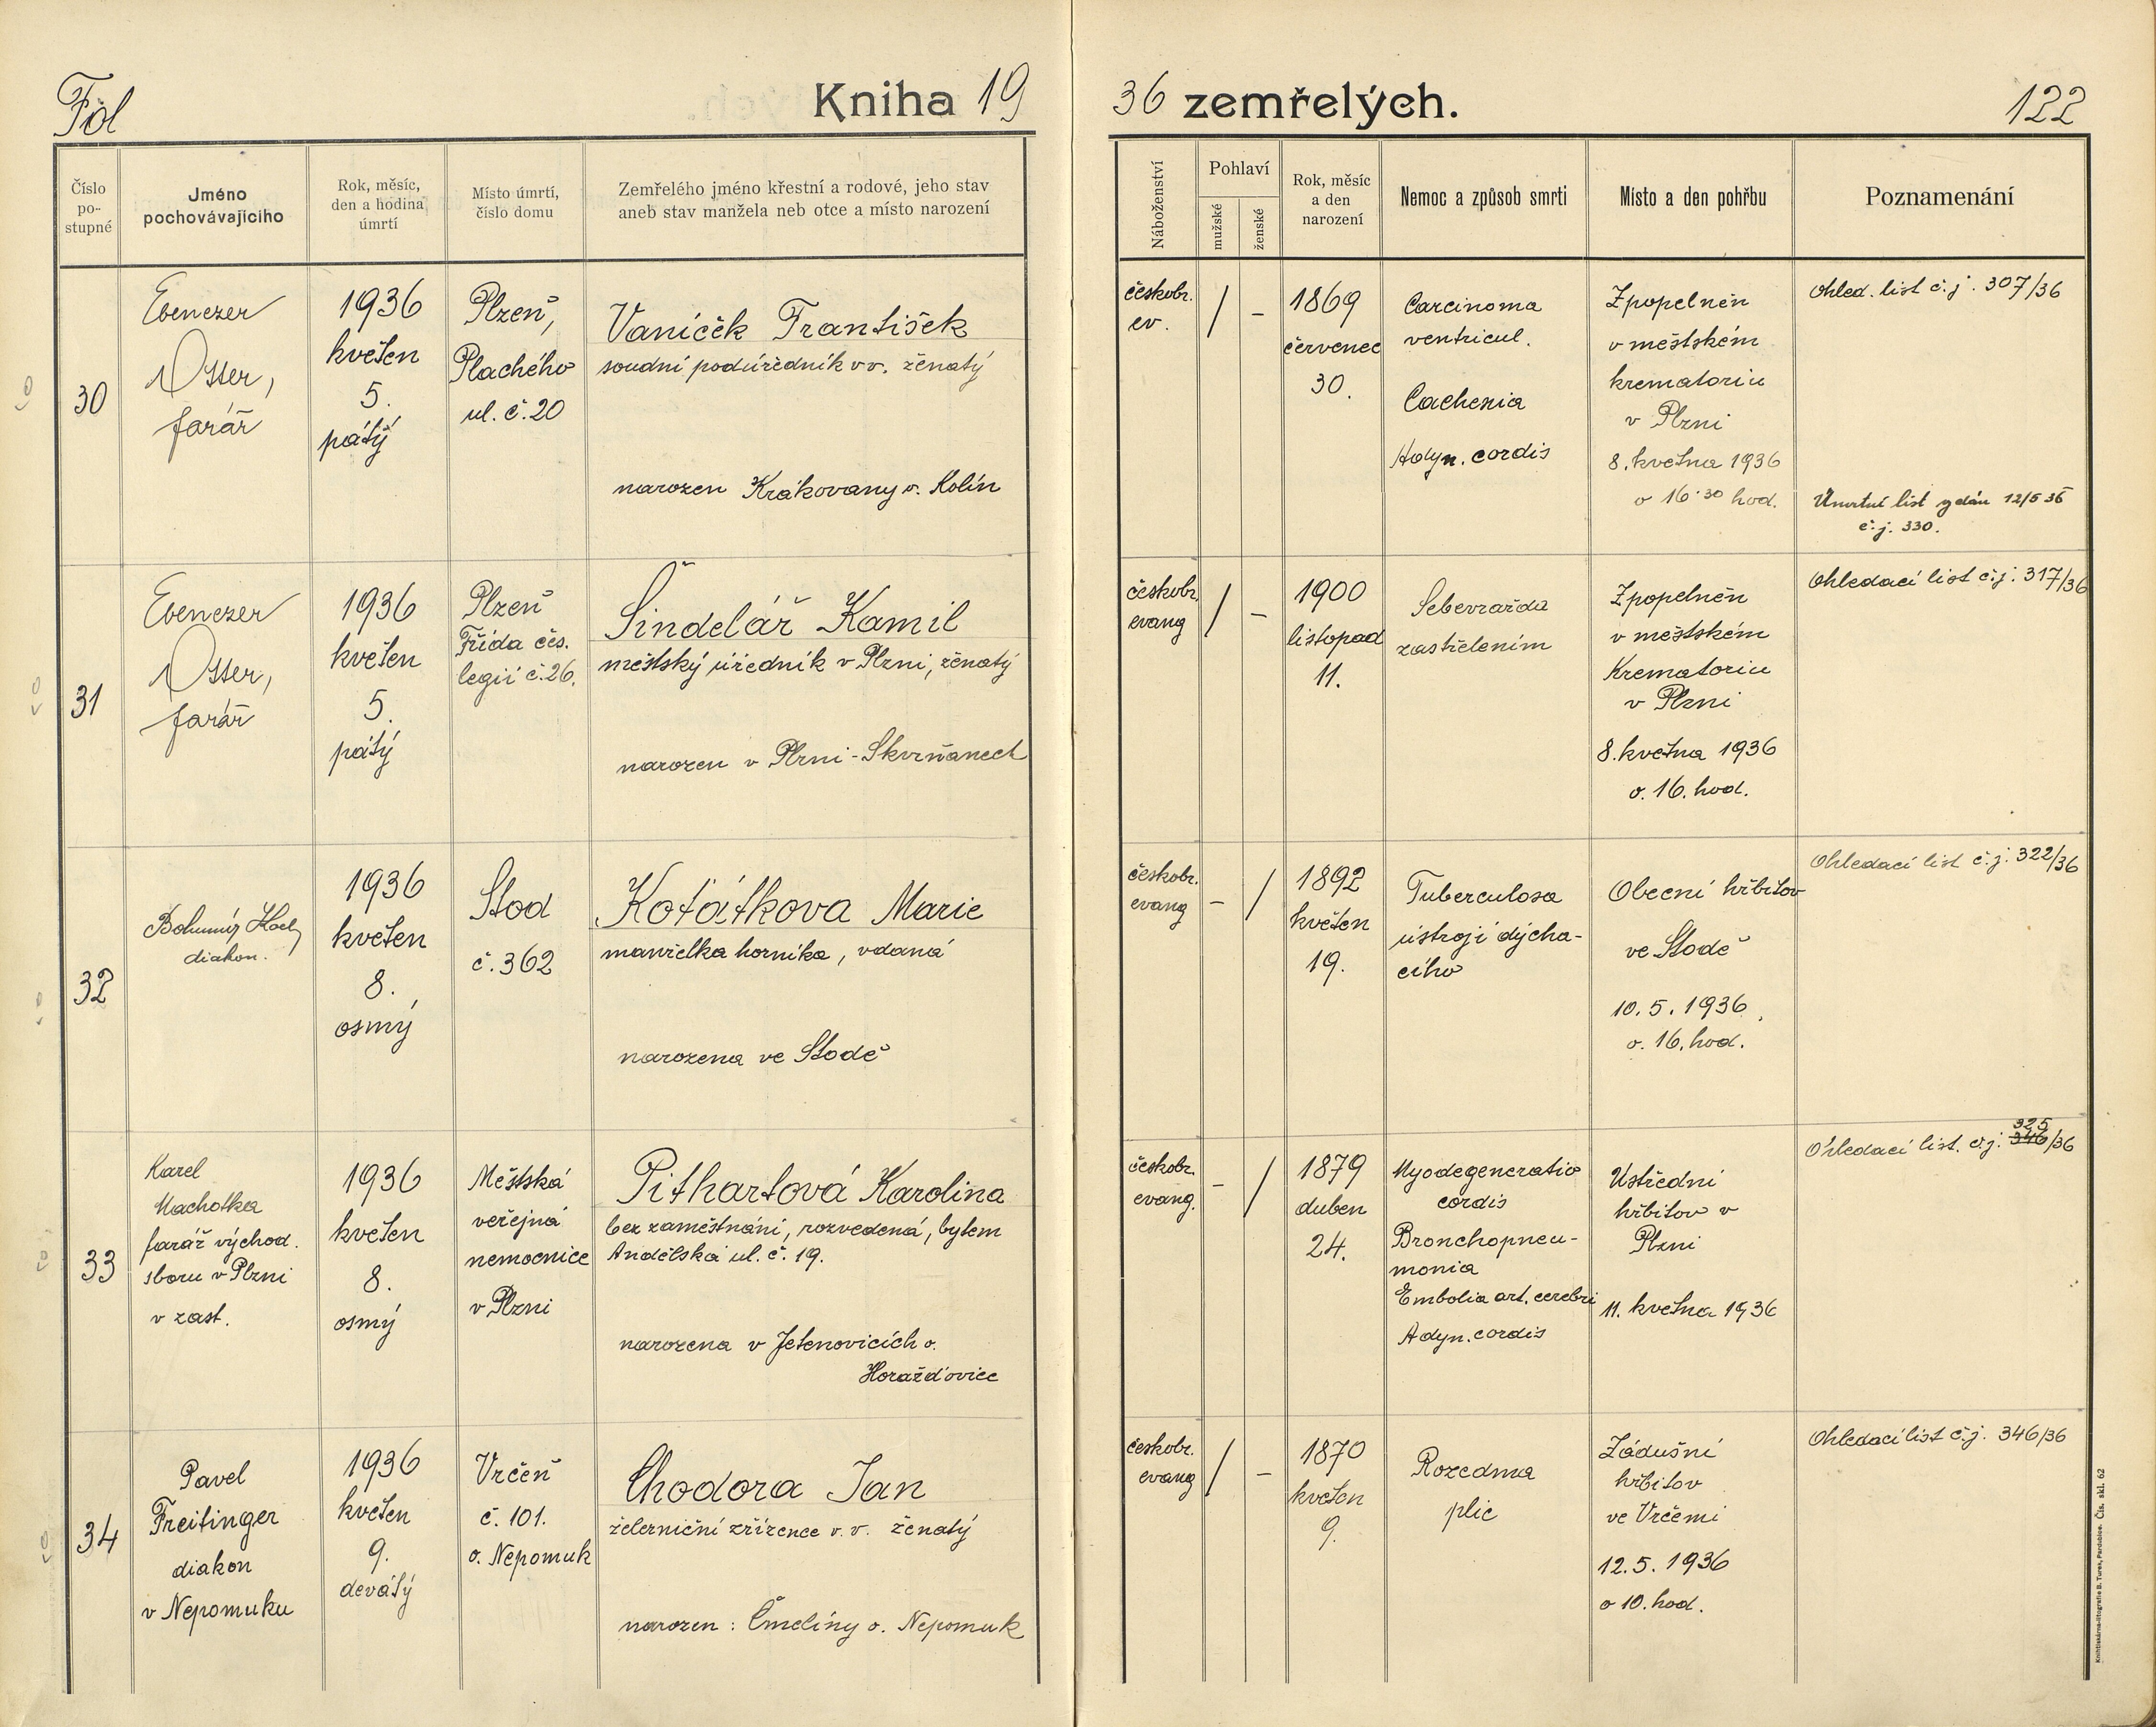 Fol
Kniha 19
36 zemřelých.
122
Číslo po-stupné
Jméno pochovávajícího
Rok, měsíc, den a hodina úmrtí
Místo úmrtí, číslo domu
Zemřelého jméno křestní a rodové, jeho stav
aneb stav manžela neb otce a místo narození
Náboženství
Pohlaví
mužské
ženské
Rok, měsíc a den narození
Nemoc a způsob smrti
Místo a den pohřbu
Poznamenání
30
Ebenezer
Otter,
farář
1936
květen
5.
pátý
Plzeň,
Plachého
ul. č. 20
Vaníček František
soudní podúředník v v. ženatý
narozen Krakovany o. Kolín
českobr.
ev.
/
-
1869
červenec
30.
Carcinoma
ventricul.
Cachexia
Adyn. cordis
Zpopelněn
v městském
krematoriu
v Plzni
8. května 1936
o 16·30 hod.
Ohled. list č. j. 307/36
Úmrtní list vydán 12/5 36
č. j. 330.
31
Ebenezer
Otter,
farář
1936
květen
5.
pátý
Plzeň
Třída čes.
legií č. 26.
Šindelář Kamil
městský úředník v Plzni, ženatý
narozen v Plzni-Skvrňanech
českobr.
evang
/
-
1900
listopad
11.
Sebevražda
zastřelením
Zpopelněn
v městském
Krematoriu
v Plzni
8. května 1936
o. 16. hod.
Ohledací list č. j. 317/36
32
Bohumír
diakon.
1936
květen
8.
osmý
Stod
č. 362
Koťátkova Marie
manželka horníka, vdaná
narozena ve Stodě
českobr.
evang
-
/
1892
květen
19.
Tuberculosa
ústrojí dýcha-
cího
Obecní hřbitov
ve Stodě
10. 5. 1936,
o. 16. hod.
Ohledací list č. j. 322/36
33
Karel
Machotka
farář východ.
sboru v Plzni
v zast.
1936
květen
8.
osmý
Městská
veřejná
nemocnice
v Plzni
Pithartová Karolina
bez zaměstnání, rozvedená, bytem
Andělská ul. č. 19.
narozena v Jetenovicích o.
Horažďovice
českobr.
evang.
-
/
1879
duben
24.
Myodegeneratio
cordis
Bronchopneu-
monia
Embolia art. cerebri
Adyn. cordis
Ústřední
hřbitov v
Plzni
11. května 1936
325
Ohledací list. č. j. 346/36
34
Pavel
Freitinger
diakon
v Nepomuku
1936
květen
9.
devátý
Vrčeň
č. 101.
o. Nepomuk
Chodora Jan
železniční zřízenec v. v. ženatý
narozen : Čmelíny o. Nepomuk
českobr.
evang
/
-
1870
květen
9.
Rozedma
plic
Zádušní
hřbitov
ve Vrčeni
12. 5. 1936
o 10. hod.
Ohledací list č. j. 346/36
Knihtiskárna-litografie B. Turek, Pardubice. Čís. skl. 62